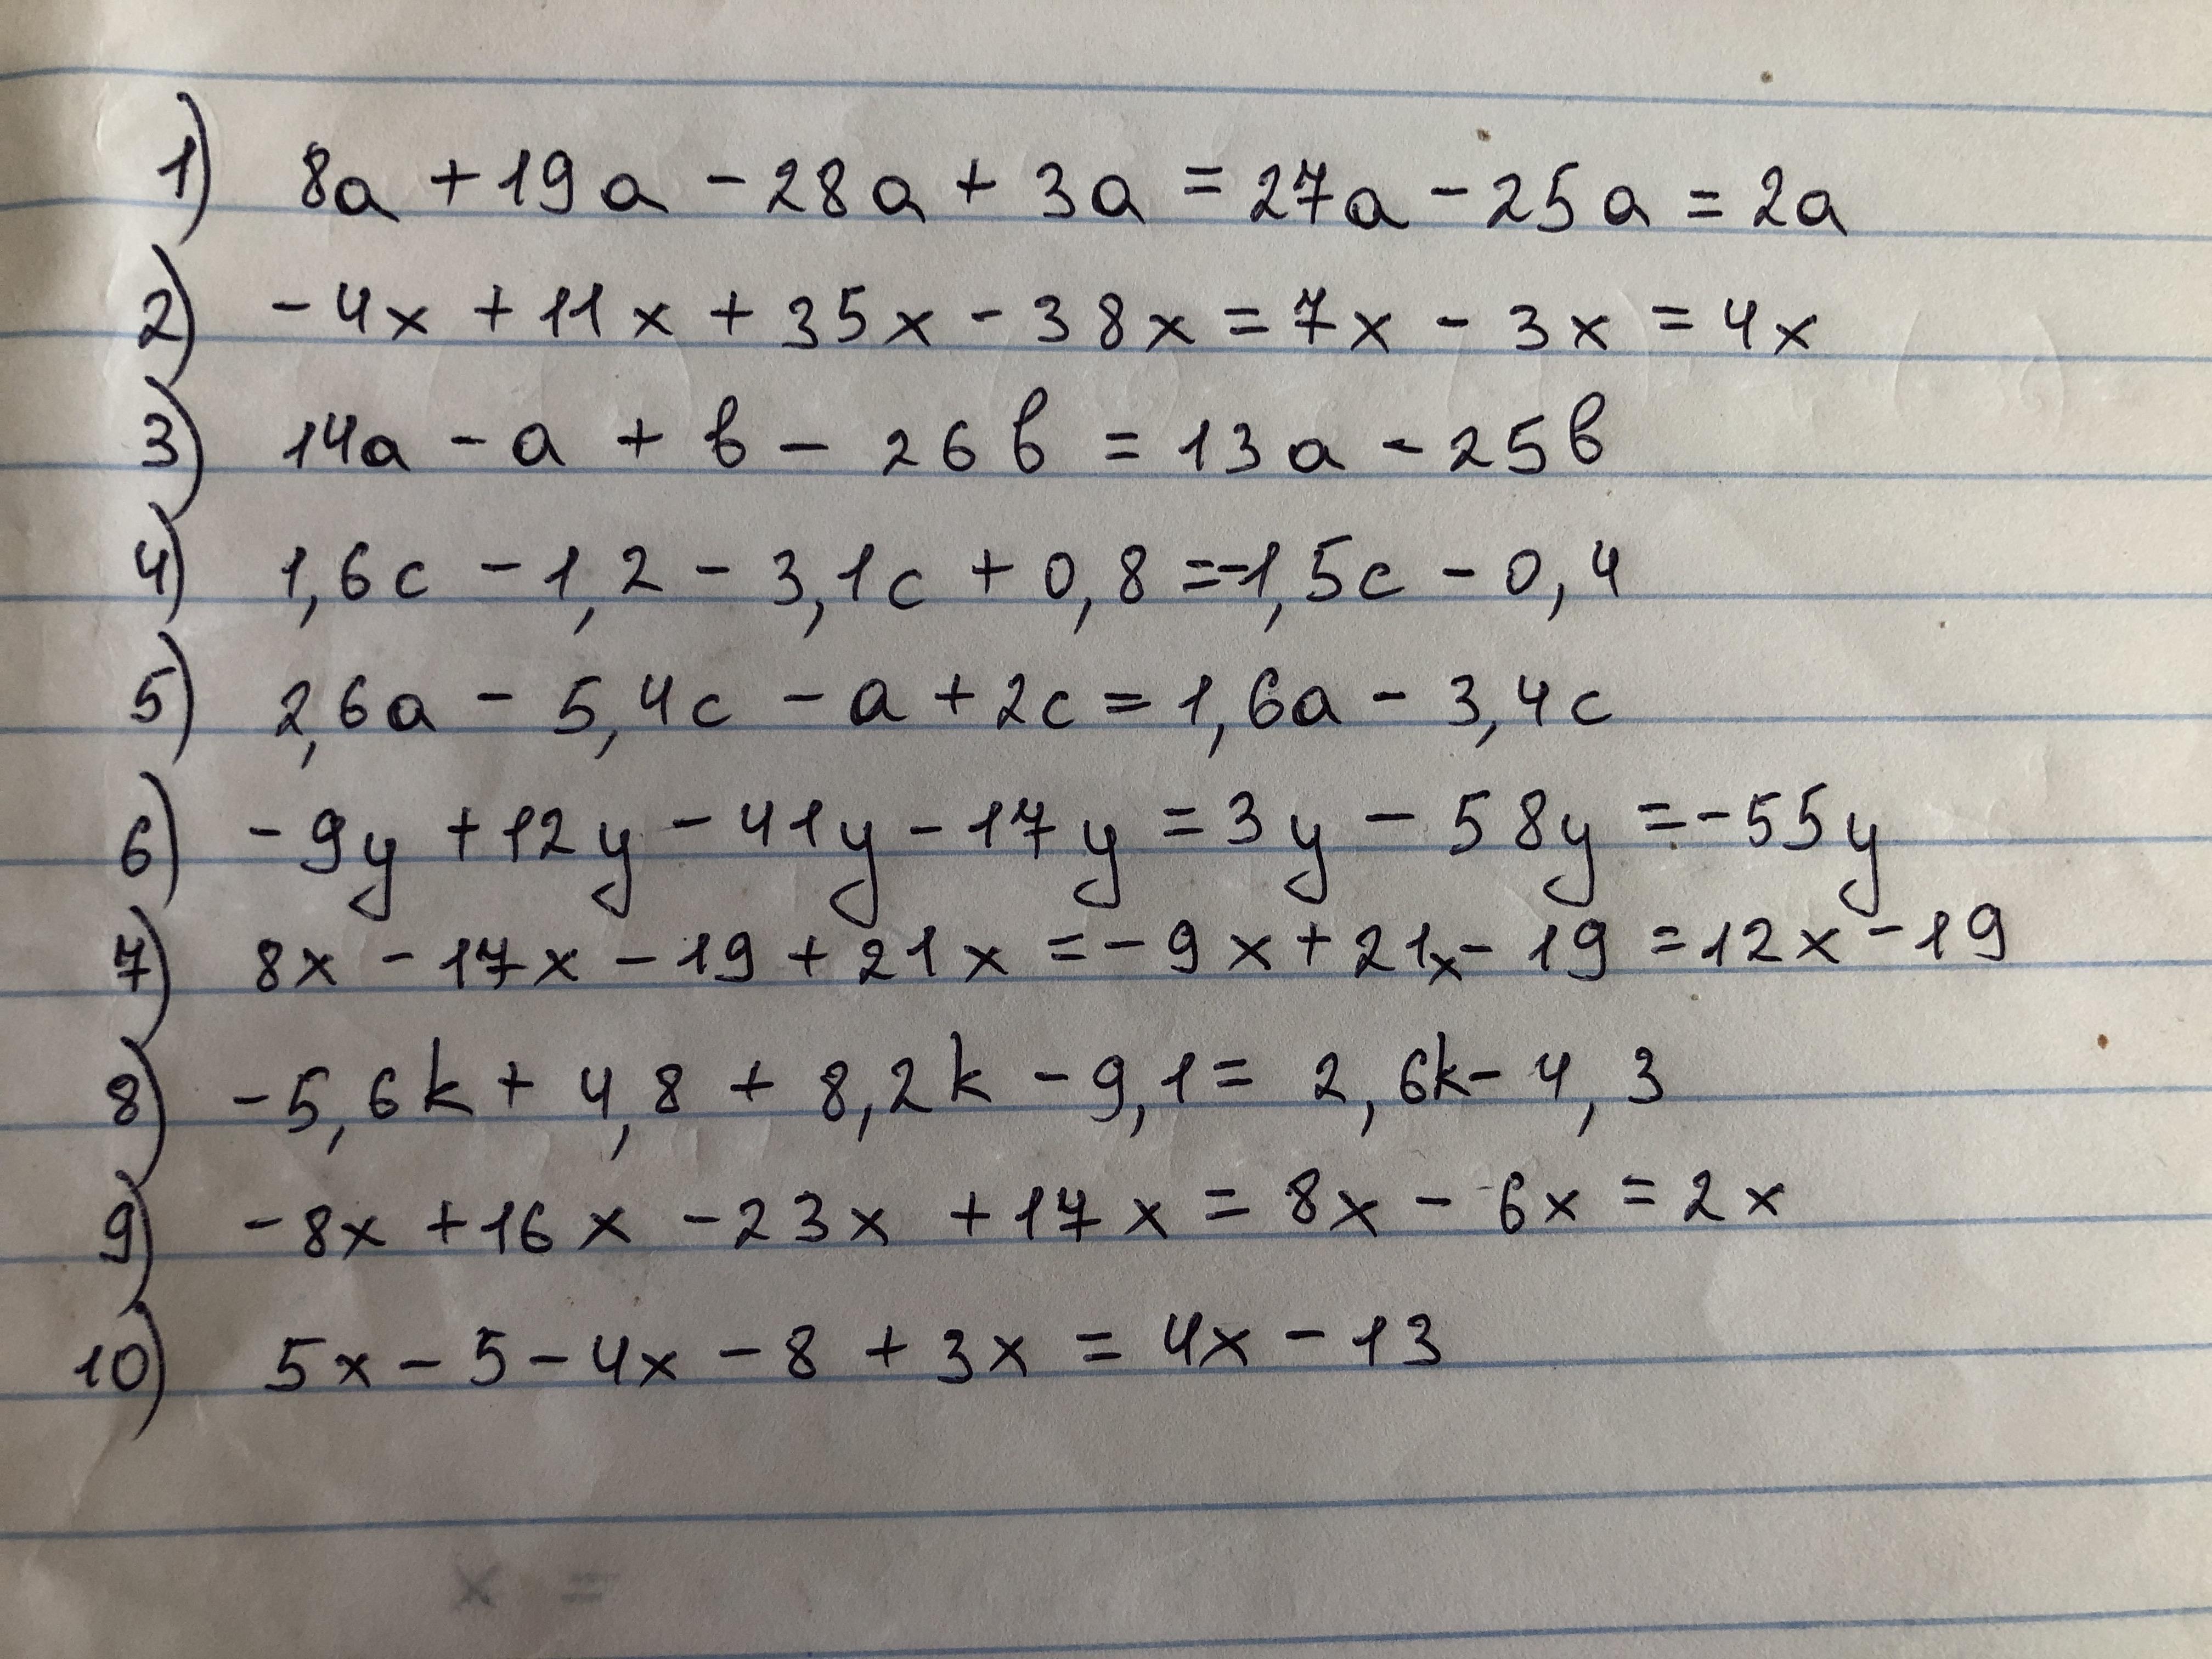 1) 8a + 19a - 28a + 3a = 27a - 25a = 2a
2) - 4x + 11x + 35x - 38x = 7x - 3x = 4x
3) 14a - a + b - 26b = 13a - 25b
4) 1,6c - 1,2 - 3,1c + 0,8 = -1,5c - 0,4
5) 2,6a - 5,4c - a + 2c = 1,6a - 3,4c
6) - 9y + 12y - 41y - 17y = 3y - 58y = -55y
7) 8x - 17x - 19 + 21x = - 9x + 21x - 19 = 12x - 19
8) - 5,6k + 4,8 + 8,2k - 9,1 = 2,6k - 4,3
9) - 8x + 16x - 23x + 17x = 8x - 6x = 2x
10) 5x - 5 - 4x - 8 + 3x = 4x - 13
x =